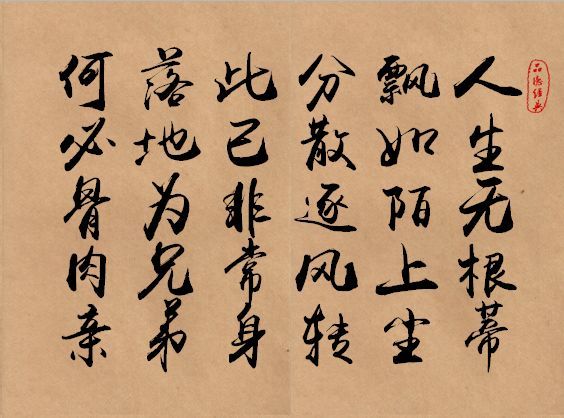 人生无根蒂
飘如陌上尘
分散逐风转
此已非常身
落地为兄弟
何必骨肉亲